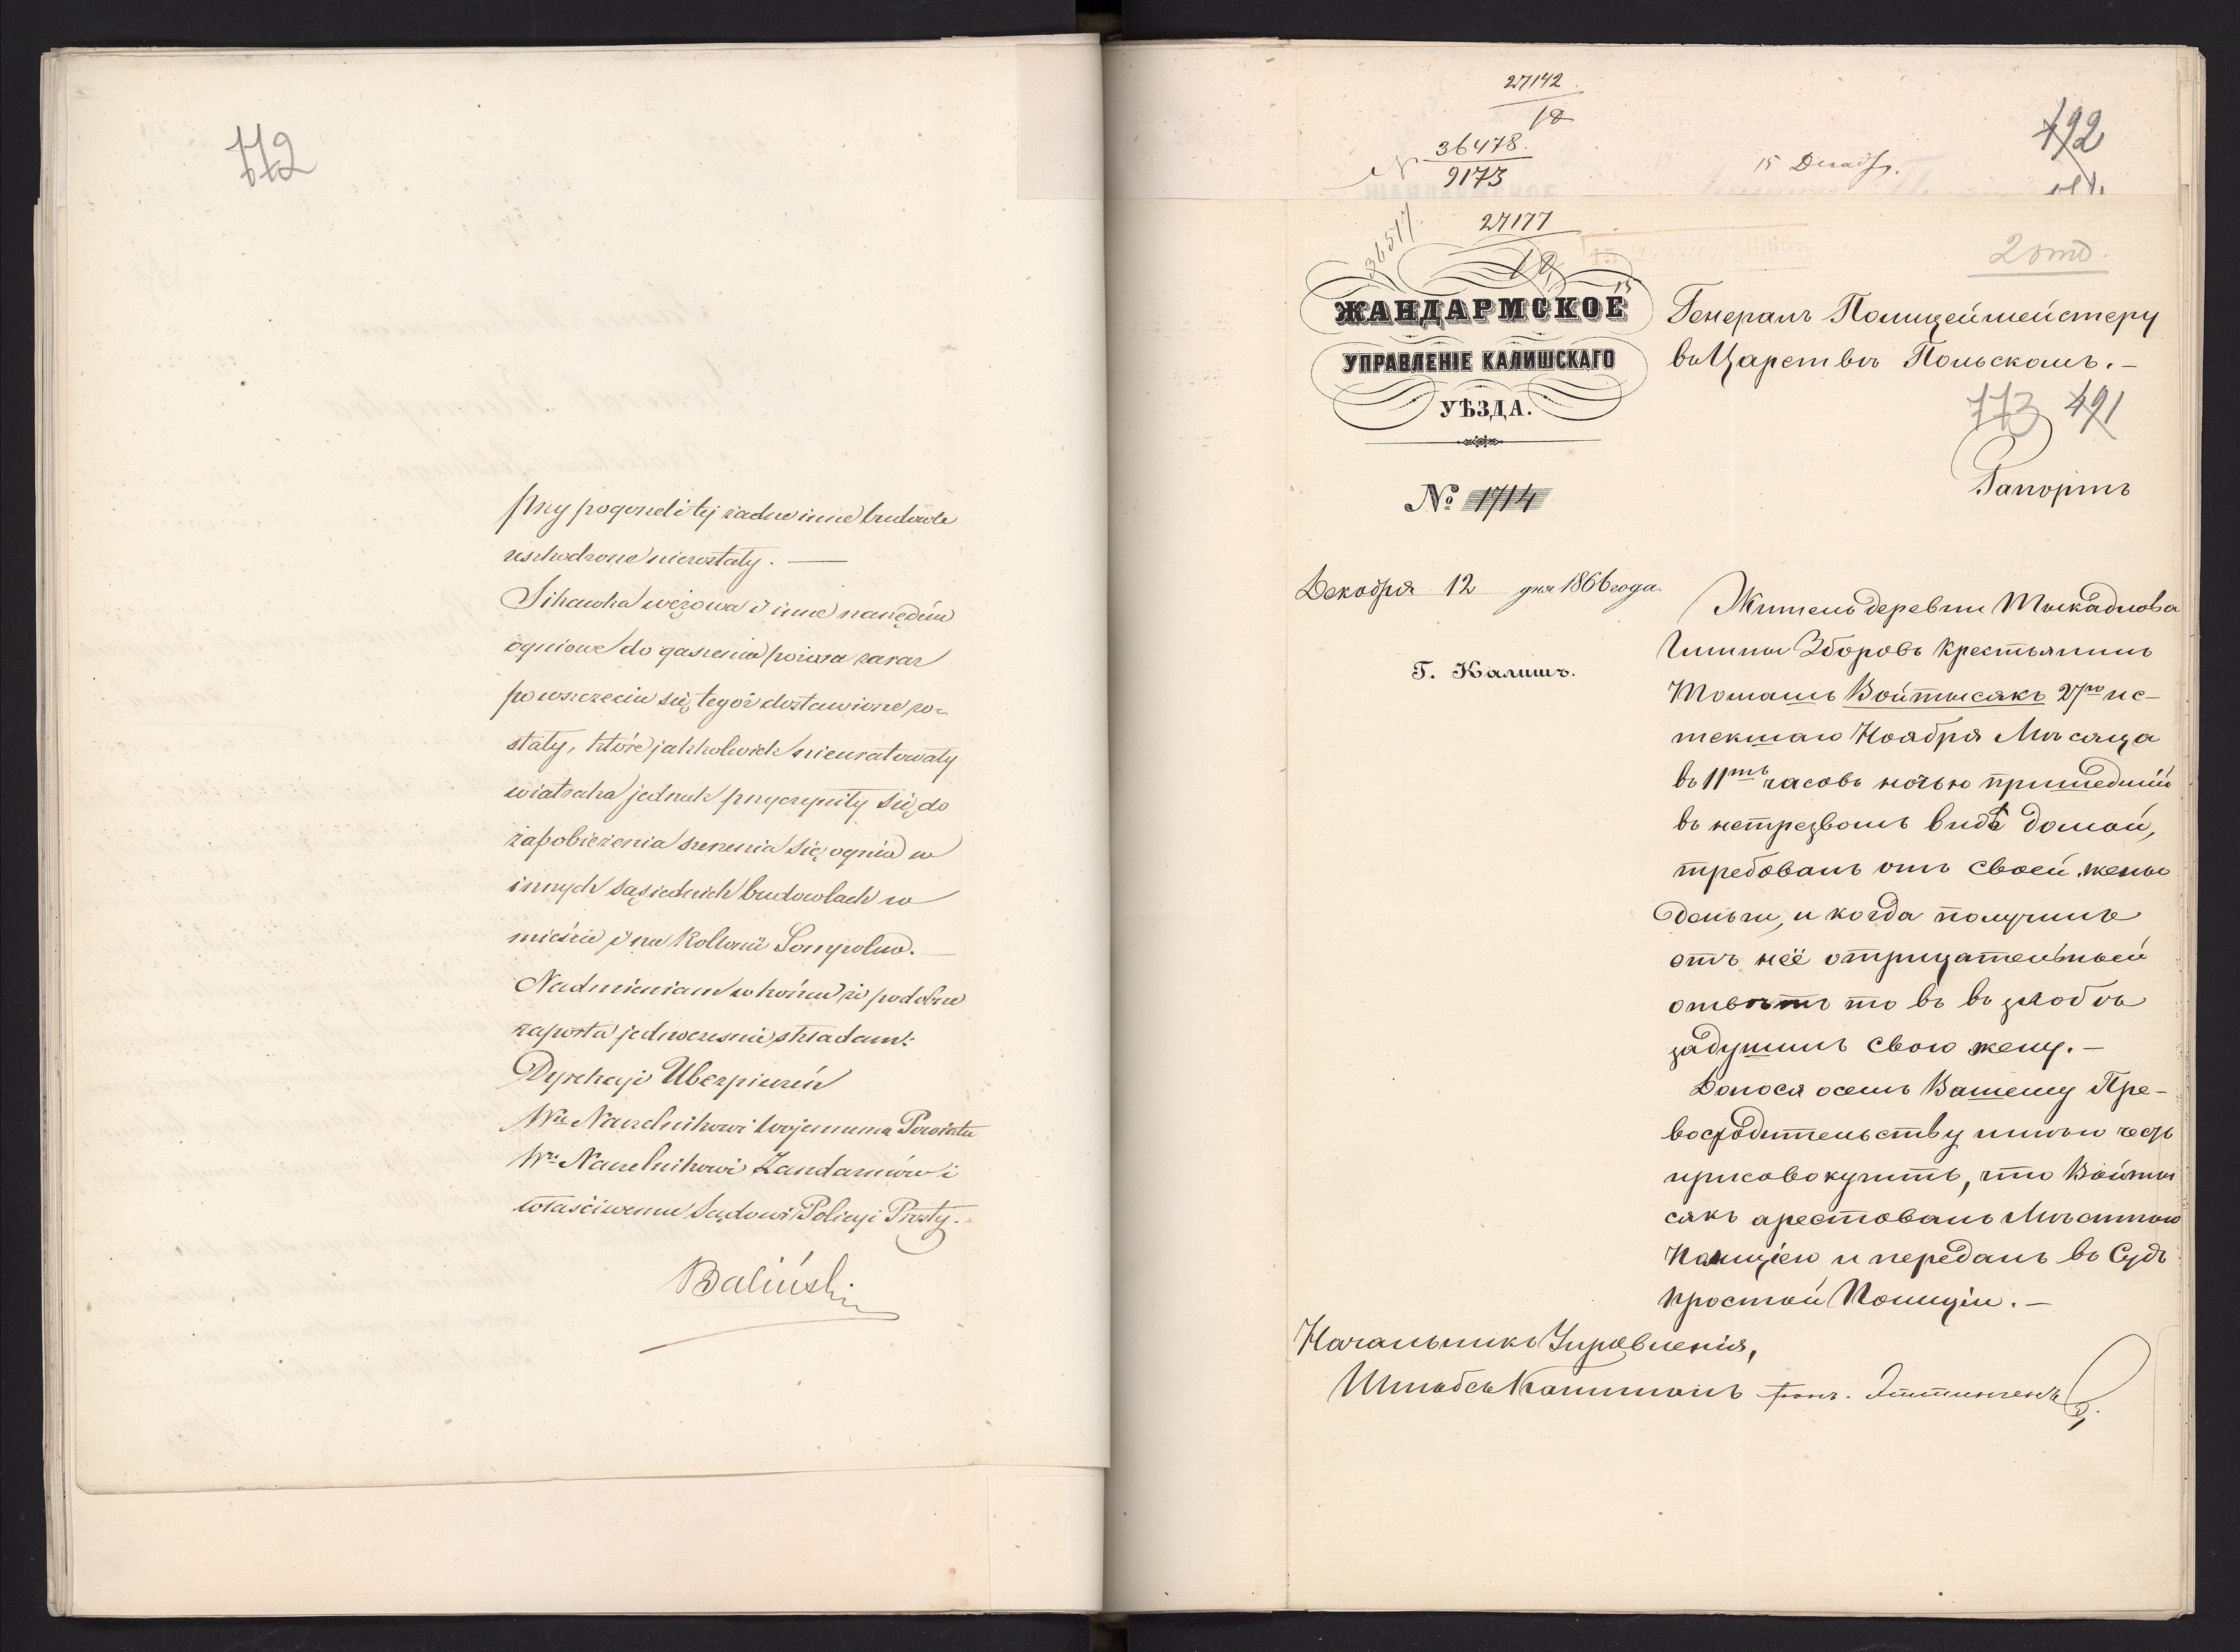 112
przy pogorzeli tej żadne inne budowle
uszkodzone niezostały. —
Sikawka wężowa i inne narzędzia
ogniowe do gaszenia pożaru zaraz
po wszczęciu się tegoż dostawione zo-
stały, które jakkolwiek nieuratowały
wiatraka jednak przyczyniły się do
zapobieżenia szerzenia się ognia w
innych sąsiednich budowlach w
mieście i na Kollonii Sompolno. —
Nadmieniam w końcu że podobne
raporta jednocześnie składam:
Dyrekcyi Ubezpieczeń
Wu Naczelnikowi Wojennemu Powiatu
Wu Naczelnikowi Żandarmów i
właściwemu Sądowi Policyi Prosty.
Baliński
27142
18
36478.
N 9173
15 Декабр.
192
27177
18
36517
2 отд.
ЖАНДАРМСКОЕ
УПРАВЛЕНІЕ КАЛИШСКАГО
УѢЗДА.
Генералъ Полицеймейстеру
въ Царствѣ Польскомъ. —
113 191
Рапортъ
№ 1714
Декабря 12 дня 1866 года.
Г. Калишъ.
Житель деревни
Гмины Зборовъ крестьянинъ
Томашъ Войтысякъ 27го ис-
текшаго Ноября Мѣсяца
въ 11ть часовъ ночью пришедшій
въ нетрезвомъ видѣ домой,
требовалъ отъ своей жены
деньги, и когда получилъ
отъ неё отрицательный
отвѣтъ то въ въ злобѣ
задушилъ свою жену. —
Донося осемъ Вашему Пре-
восходительству имѣю честь
присовокупить, что Войты
сякъ арестованъ Мѣстною
Полиціею и переданъ въ Судъ
простой Полиціи. —
Начальникъ Управленія,
Штабсъ Капитанъ фонъ. Эттингенъ